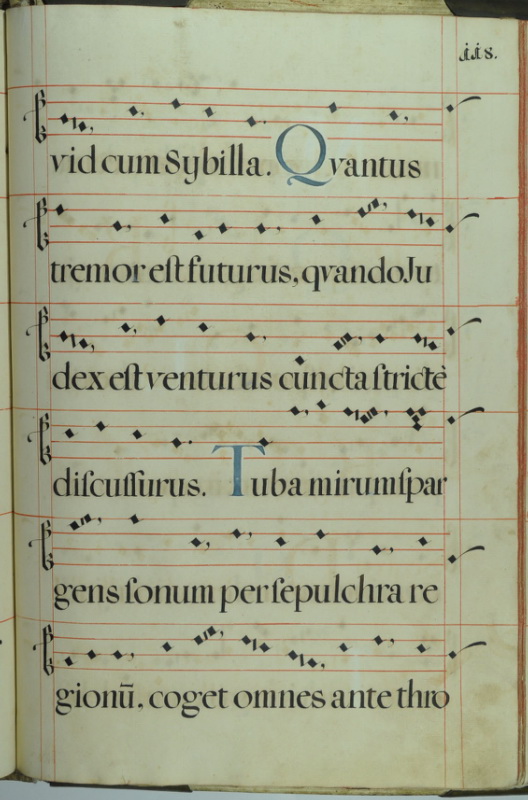 118.
vid cum Sybilla. Qvantus
tremor eſt futurus, qvando Ju
dex eſt venturus cuncta ſtrictè
diſcuſſurus. Tuba mirum ſpar
gens ſonum per ſepulchra re
gionū, coget omnes ante thro